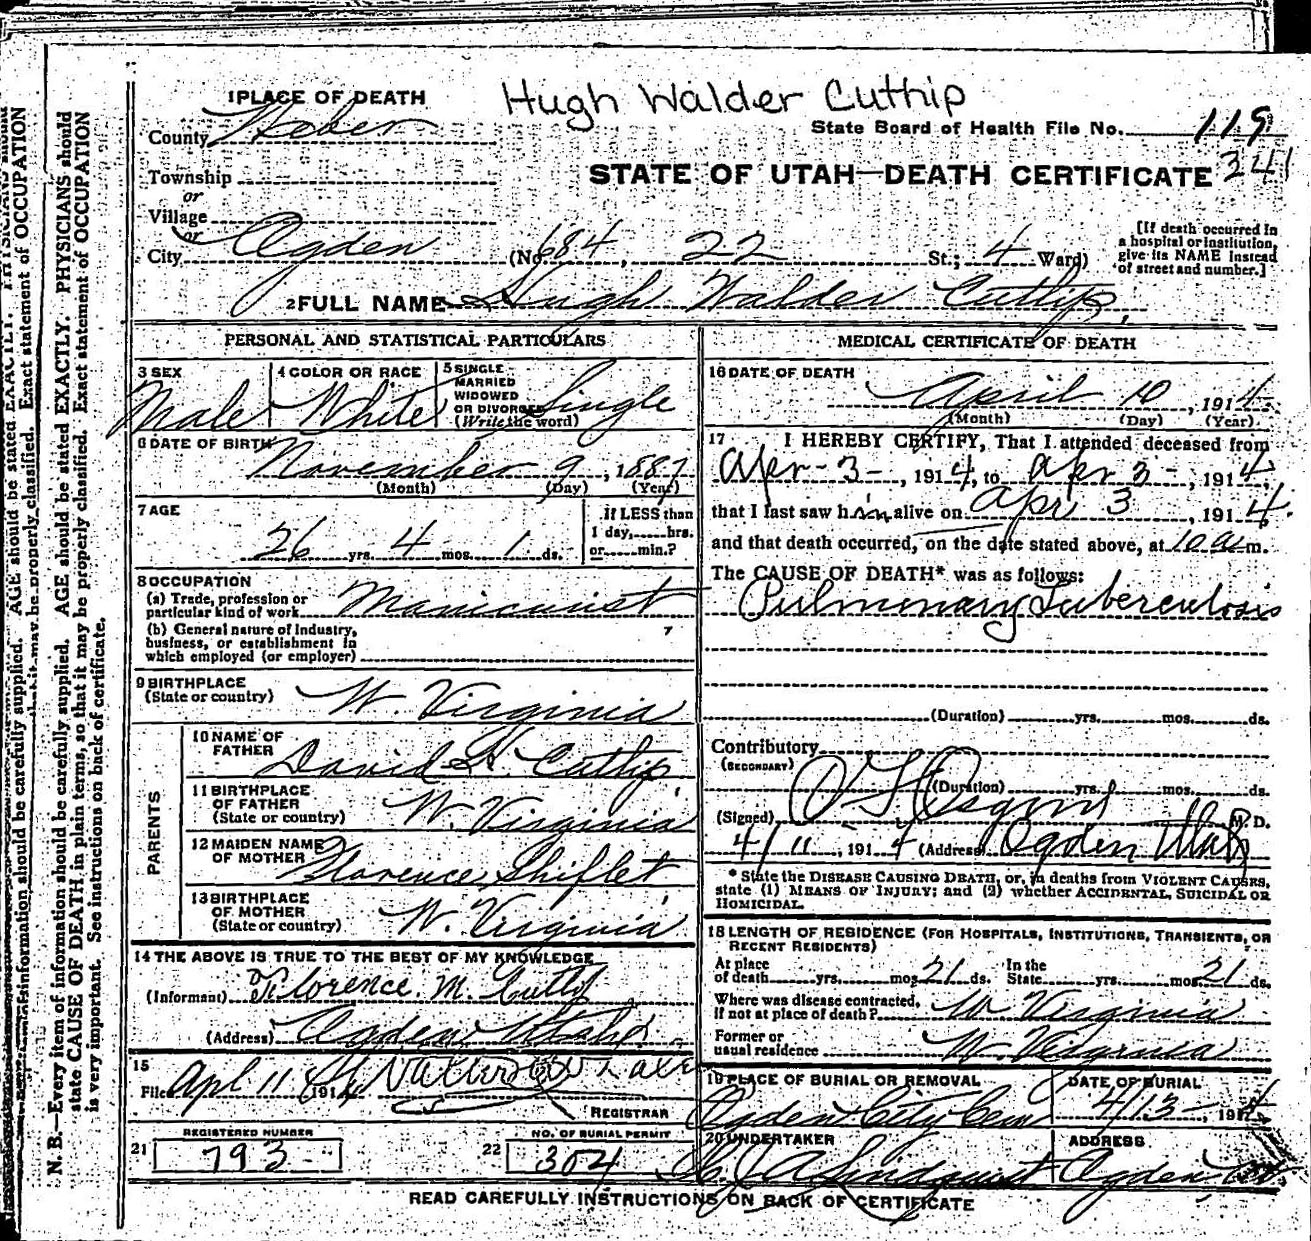 Hugh Walder Cuthip
1 PLACE OF DEATH
County Weber
State Board of Health File No. 119
341
STATE OF UTAH—DEATH CERTIFICATE
Township
or
Village
or
City Ogden (No. 684, 22 St.; 4 Ward)
[If death occurred in
a hospital or institution,
give its NAME instead
of street and number.]
2 FULL NAME Hugh Walder Cutlip,
PERSONAL AND STATISTICAL PARTICULARS
3 SEX
Male
4 COLOR OR RACE
White
5 SINGLE
MARRIED
WIDOWED
OR DIVORCED
(Write the word)
Single
6 DATE OF BIRTH
November 9, 1887
(Month) (Day) (Year)
7 AGE
26 yrs. 4 mos. 1 ds.
If LESS than
1 day,......hrs.
or......min.?
8 OCCUPATION
(a) Trade, profession or
particular kind of work Manicurist
(b) General nature of industry,
business, or establishment in
which employed (or employer)
9 BIRTHPLACE
(State or country) W. Virginia
PARENTS
10 NAME OF
FATHER David H. Cutlip
11 BIRTHPLACE
OF FATHER
(State or country) W. Virginia
12 MAIDEN NAME
OF MOTHER Florence Shiflet
13 BIRTHPLACE
OF MOTHER
(State or country) W. Virginia
14 THE ABOVE IS TRUE TO THE BEST OF MY KNOWLEDGE
(Informant) Florence M. Cutlip
(Address) Ogden Utah
15
Filed Apl 11 1914
REGISTRAR
REGISTERED NUMBER
21 793
NO. OF BURIAL PERMIT
22 304
MEDICAL CERTIFICATE OF DEATH
16 DATE OF DEATH
April 10, 1914
(Month) (Day) (Year)
17 I HEREBY CERTIFY, That I attended deceased from
Apr-3-, 1914, to Apr 3-, 1914,
that I last saw him alive on Apr 3, 1914.
and that death occurred, on the date stated above, at 10 am.
The CAUSE OF DEATH* was as follows:
Pulmonary Tuberculosis
(Duration) yrs. mos. ds.
Contributory
(SECONDARY)
(Duration) yrs. mos. ds.
(Signed) M. D.
4/11, 1914 (Address) Ogden Utah
* State the DISEASE CAUSING DEATH, or, in deaths from VIOLENT CAUSES,
state (1) MEANS OF INJURY; and (2) whether ACCIDENTAL, SUICIDAL OR
HOMICIDAL.
18 LENGTH OF RESIDENCE (FOR HOSPITALS, INSTITUTIONS, TRANSIENTS, OR
RECENT RESIDENTS)
At place
of death yrs. mos. 21 ds.
In the
State yrs. mos. 21 ds.
Where was disease contracted,
if not at place of death? W. Virginia
Former or
usual residence W. Virginia
19 PLACE OF BURIAL OR REMOVAL
Ogden City Cem
DATE OF BURIAL
4/13-, 1914
20 UNDERTAKER
Lindquist
ADDRESS
Ogden
READ CAREFULLY INSTRUCTIONS ON BACK OF CERTIFICATE
N. B.—Every item of information should be carefully supplied. AGE should be stated EXACTLY. PHYSICIANS should
state CAUSE OF DEATH in plain terms, so that it may be properly classified. Exact statement of OCCUPATION
is very important. See instructions on back of certificate.